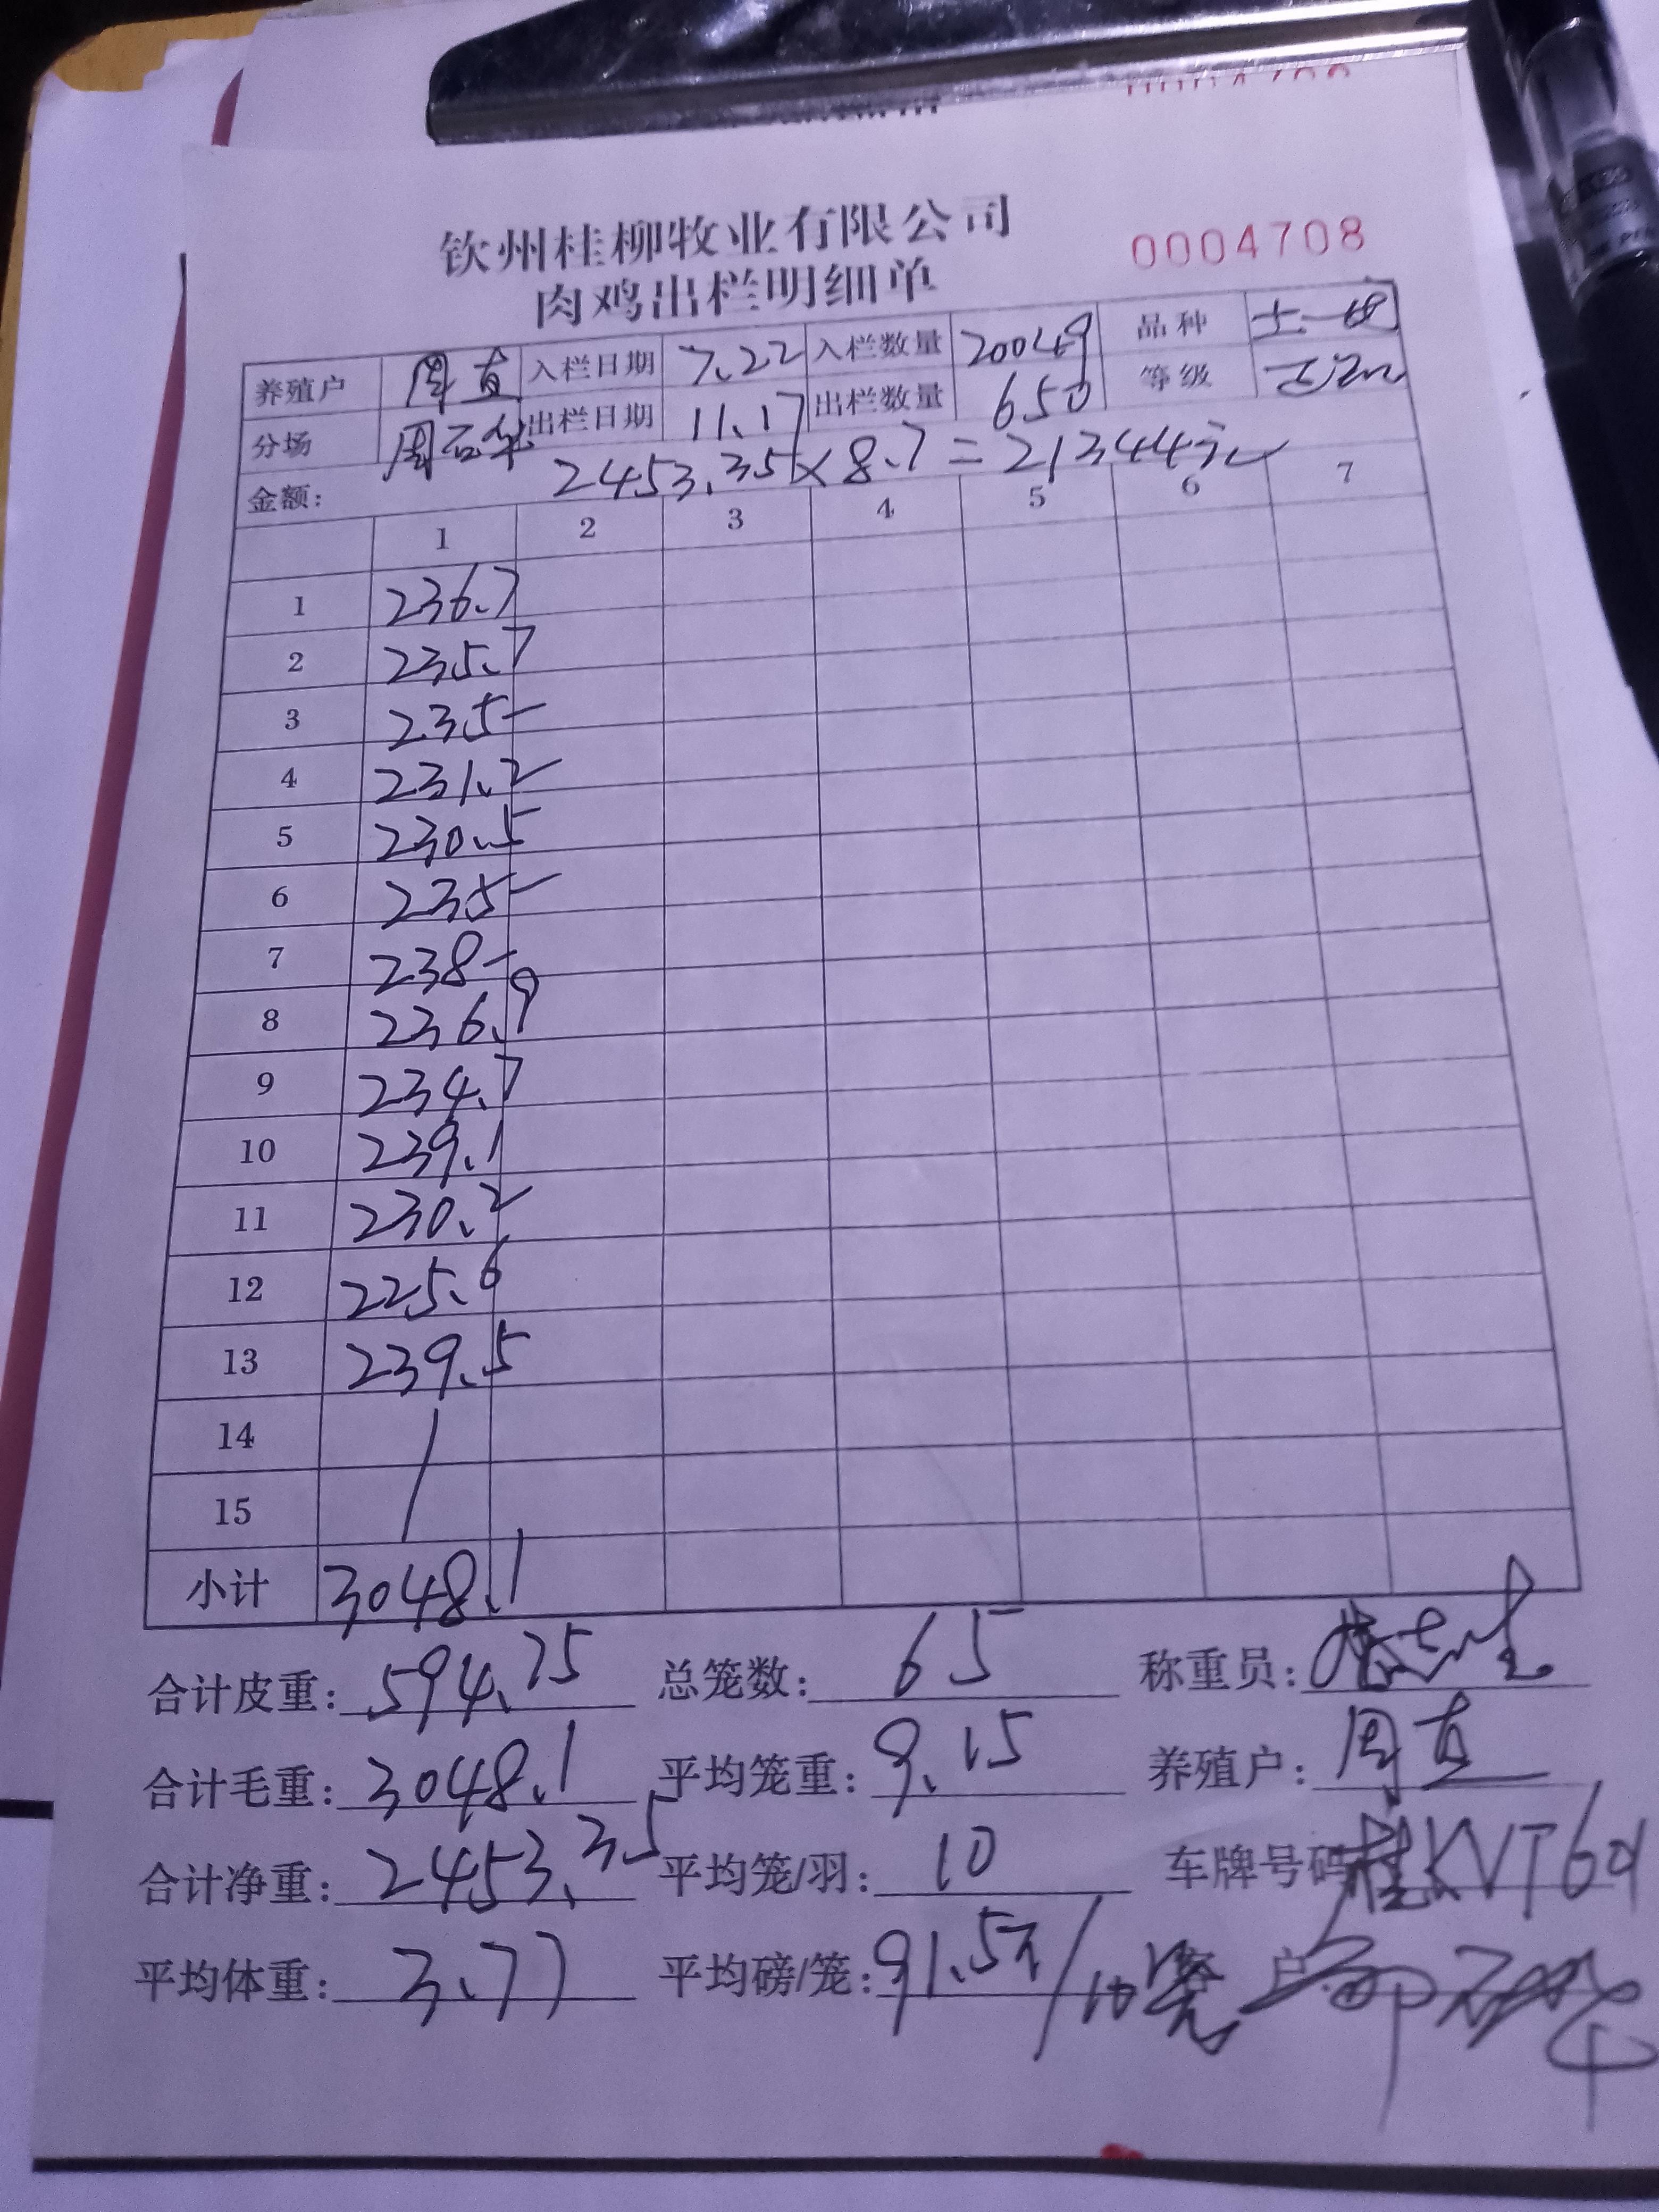 钦州桂柳牧业有限公司
肉鸡出栏明细单
0004708
养殖户 周直 入栏日期 7.22 入栏数量 20049 品种
分场 出栏日期 11.17 出栏数量 650 等级
金额: 2453.35×8.7=21344元
1 2 3 4 5 6 7
1 236.7
2 235.7
3 235-
4 231.2
5 230.5
6 235-
7 238-
8 236.9
9 234.7
10 239.1
11 230.2
12 225.6
13 239.5
14
15
小计 3048.1
合计皮重: 594.75 总笼数: 65 称重员:
合计毛重: 3048.1 平均笼重: 9.15 养殖户: 周直
合计净重: 2453.35 平均笼/羽: 10 车牌号码 桂KVT601
平均体重: 3.77 平均磅/笼: 91.5 客户